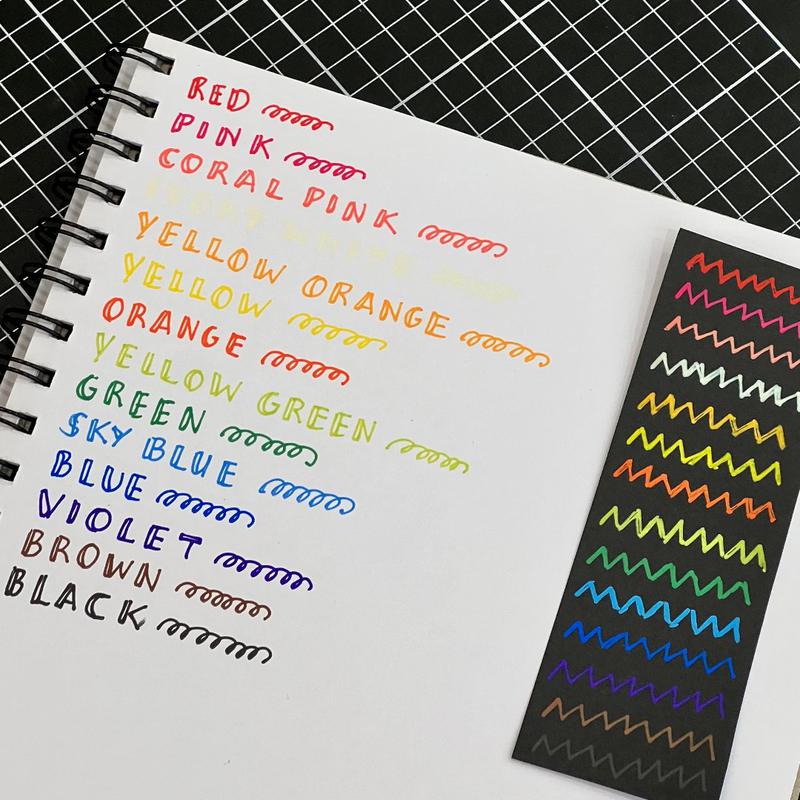 RED
PINK
CORAL PINK
IVORY WHITE
YELLOW ORANGE
YELLOW
ORANGE
YELLOW GREEN
GREEN
SKY BLUE
BLUE
VIOLET
BROWN
BLACK